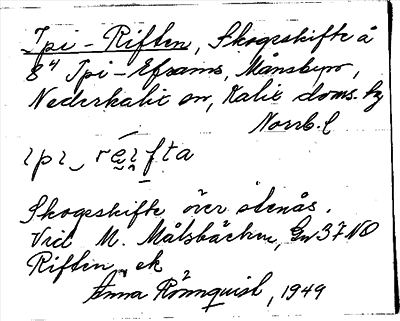 Ipi-Riften, Skogsskifte å
8⁴ Ipi-Efraims, Månsbyn,
Nederkalix sn, Kalix doms. hg
Norrb. l
ipi‿ rɛ́i̯fta
Skogsskifte över stenås.
Vid M. Målsbäcken, Gw 37 NO
Riften, ek
Anna Rönnquist, 1949